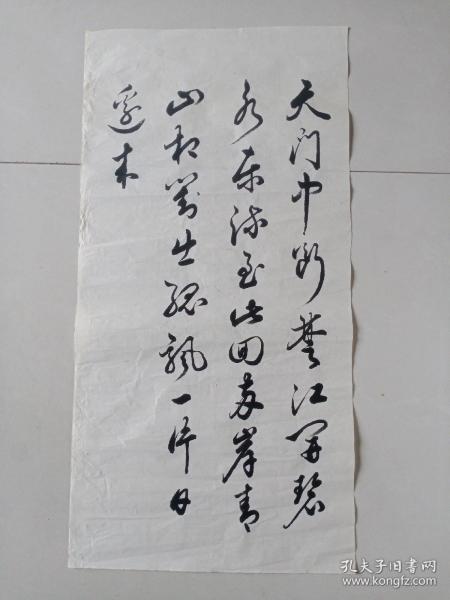 天门中断楚江开碧
水东流至此回两岸青
山相對出孤帆一片日
邊来
孔夫子旧书网
www.kongfz.com